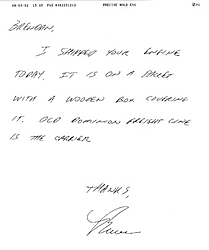 BRENDON,
I SHIPPED YOUR ENGINE
TODAY. IT IS ON A PALLET
WITH A WOODEN BOX COVERING
IT. OLD DOMINION FREIGHT LINE
IS THE CARRIER
THANKS,